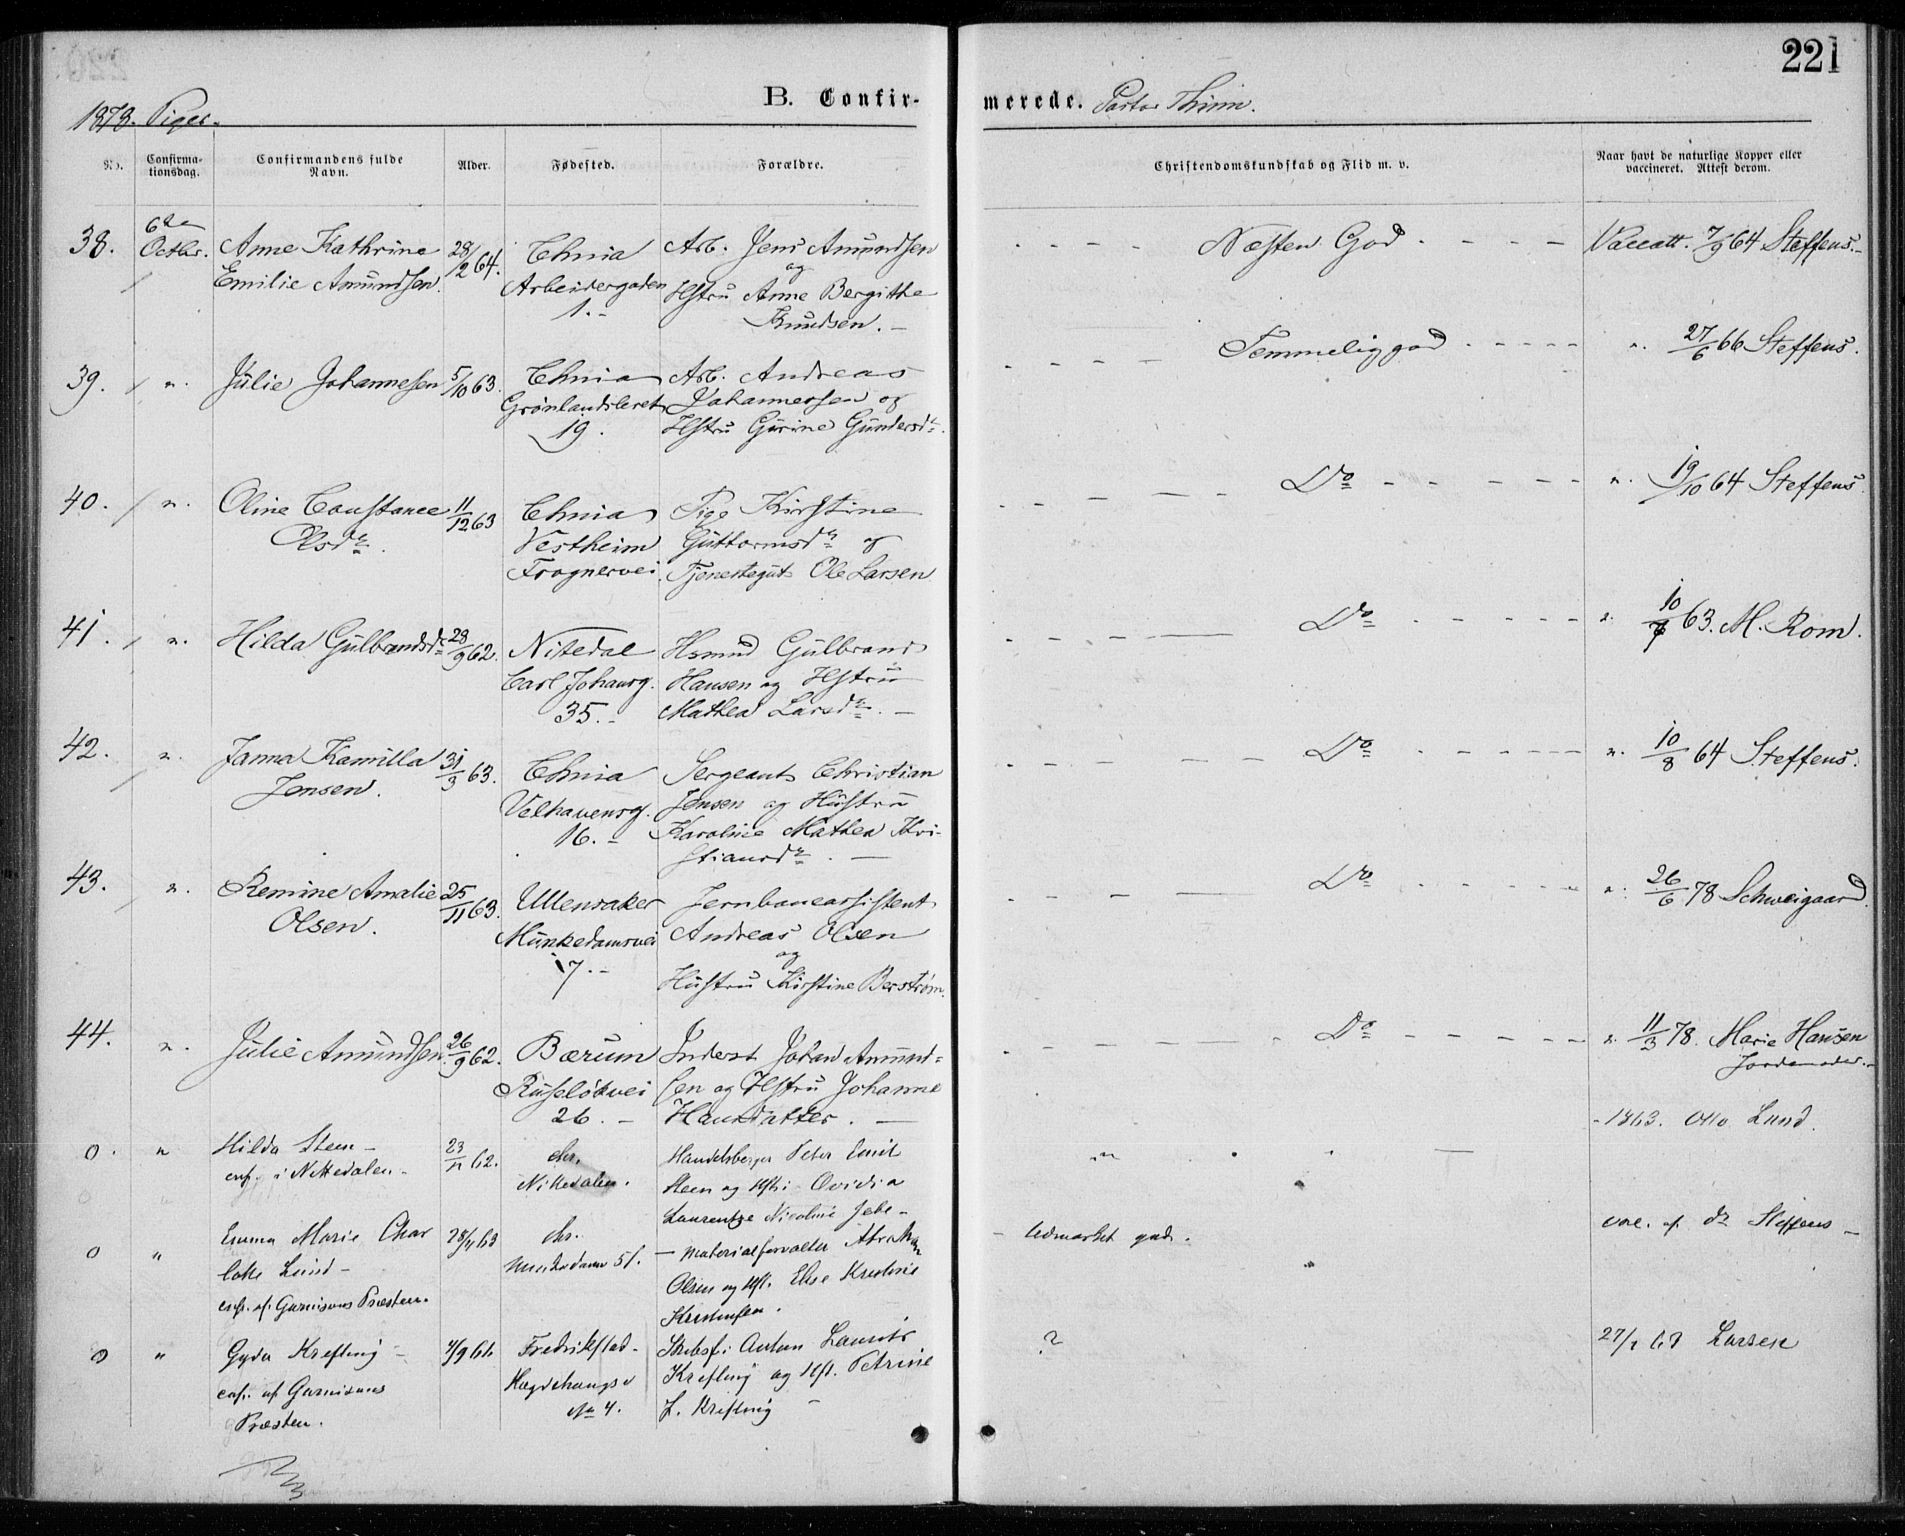 221
B. Confir-
merede. Pastor Thinn.
1878. Piger.
No.
Confirma-
tionsdag.
Confirmandens fulde
Navn.
Alder.
Fødested.
Forældre.
Christendomskundskab og Flid m. v.
Naar havt de naturlige Kopper eller
vaccineret. Attest derom.
38. 6te Octbr. Anne Kathrine 28/2 64. Chnia Arb. Jens Amundsen Næsten God Vaccatt. 7/9 64 Steffens.
Emilie Amundsen. Arbeidergaden og
1. Hstru Anne Bergithe
Knudsen.
39. " Julie Johannesen 5/10 63. Chnia Arb. Andreas Temmelig god " 27/6 66 Steffens.
Grønlandsleret Johannersen og
19. Hstru Gurine Gundersdr.
40. " Oline Constance 11/12 63 Chnia Pige Kirstine Do " 19/10 64 Steffens
Olsdr. Vestheim Guttormsdr og
Frognervei. Tjenestegut Ole Larsen
41. " Hilda Gulbrandsdr 28/9 62. Nitedal Hsmnd Gulbrand Do " 10/7 63. M. Rom.
Carl Johansg. Hansen og Hstru
35. Mathea Larsdr.
42. " Janna Kamilla 31/3 63. Chnia Sergeant Christian Do " 10/8 64 Steffens.
Jensen. Velhavensg. Jensen og Hustru
16. Karoline Mathea Kri-
stiansdr.
43. " Remine Amalie 25/11 63. Ullensaker Jernbaneassistent Do " 26/6 78 Schweigaard.
Olsen. Munkedamsvei Andreas Olsen
17. og
Hustru Kirstine Berstrøm.
44. " Julie Amundsen 26/9 62. Bærum Inderst Johan Amund- Do " 11/3 78. Marie Hansen
Jordemoder.
Ruseløkvei sen og Hstru Johanne
26. Hansdatter.
0. " Hilda Steen 23/11 62. chr. Handelsberger Peter Emil " 1863. Otto Lund.
cnf. i Nittedalen Nittedalen. Steen og Hstr. Ovidia
Laurentze Nicoline Jebe
0 " Emma Marie Char 28/11 63 chr. Materialforvalter Abraham Udmærket god. vac. af dr Steffens
lotte Lund Munkedamsv 51. Olsen og Hst. Else Kristine
cnf. af Garnisons Præsten. Kristensen.
0 " Gyda Krefting 4/9 61. Fredrikstad Skibsf. Anton Laurits ? 27/7 63 Larsen
cnf. af Garnisons Hægdehaugsv Krefting og Hst. Petrine
Præsten. No 4. L. Krefting